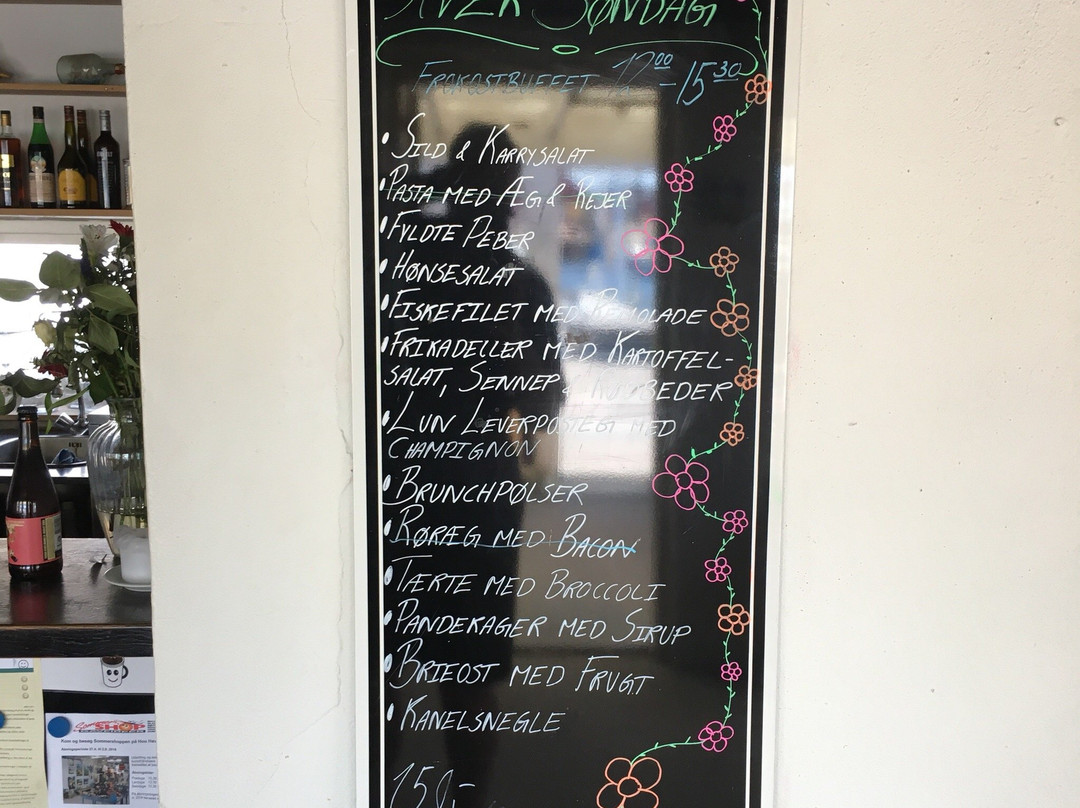 HVER SØNDAG
FROKOSTBUFFET 12⁰⁰ - 15³⁰
• SILD & KARRYSALAT
• PASTA MED ÆG & REJER
• FYLDTE PEBER
• HØNSESALAT
• FISKEFILET MED REMOLADE
• FRIKADELLER MED KARTOFFEL-
SALAT, SENNEP & RØDBEDER
• LUN LEVERPOSTEGT MED
CHAMPIGNON
• BRUNCHPØLSER
• RØRÆG MED BACON
• TÆRTE MED BROCCOLI
• PANDEKAGER MED SIRUP
• BRIEOST MED FRUGT
• KANELSNEGLE
150,-
SHOP